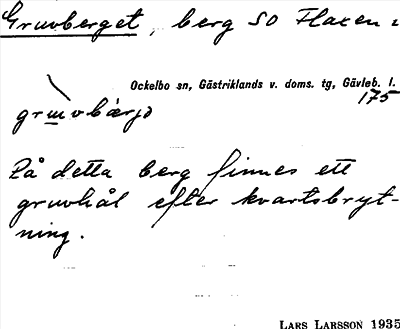 Gruvberget, berg SO Flaxen i
Ockelbo sn, Gästriklands v. doms. tg, Gävleb. l.
175
gruvbärjə
På detta berg finnes ett
gruvhål efter kvartsbryt-
ning.
LARS LARSSON 1935